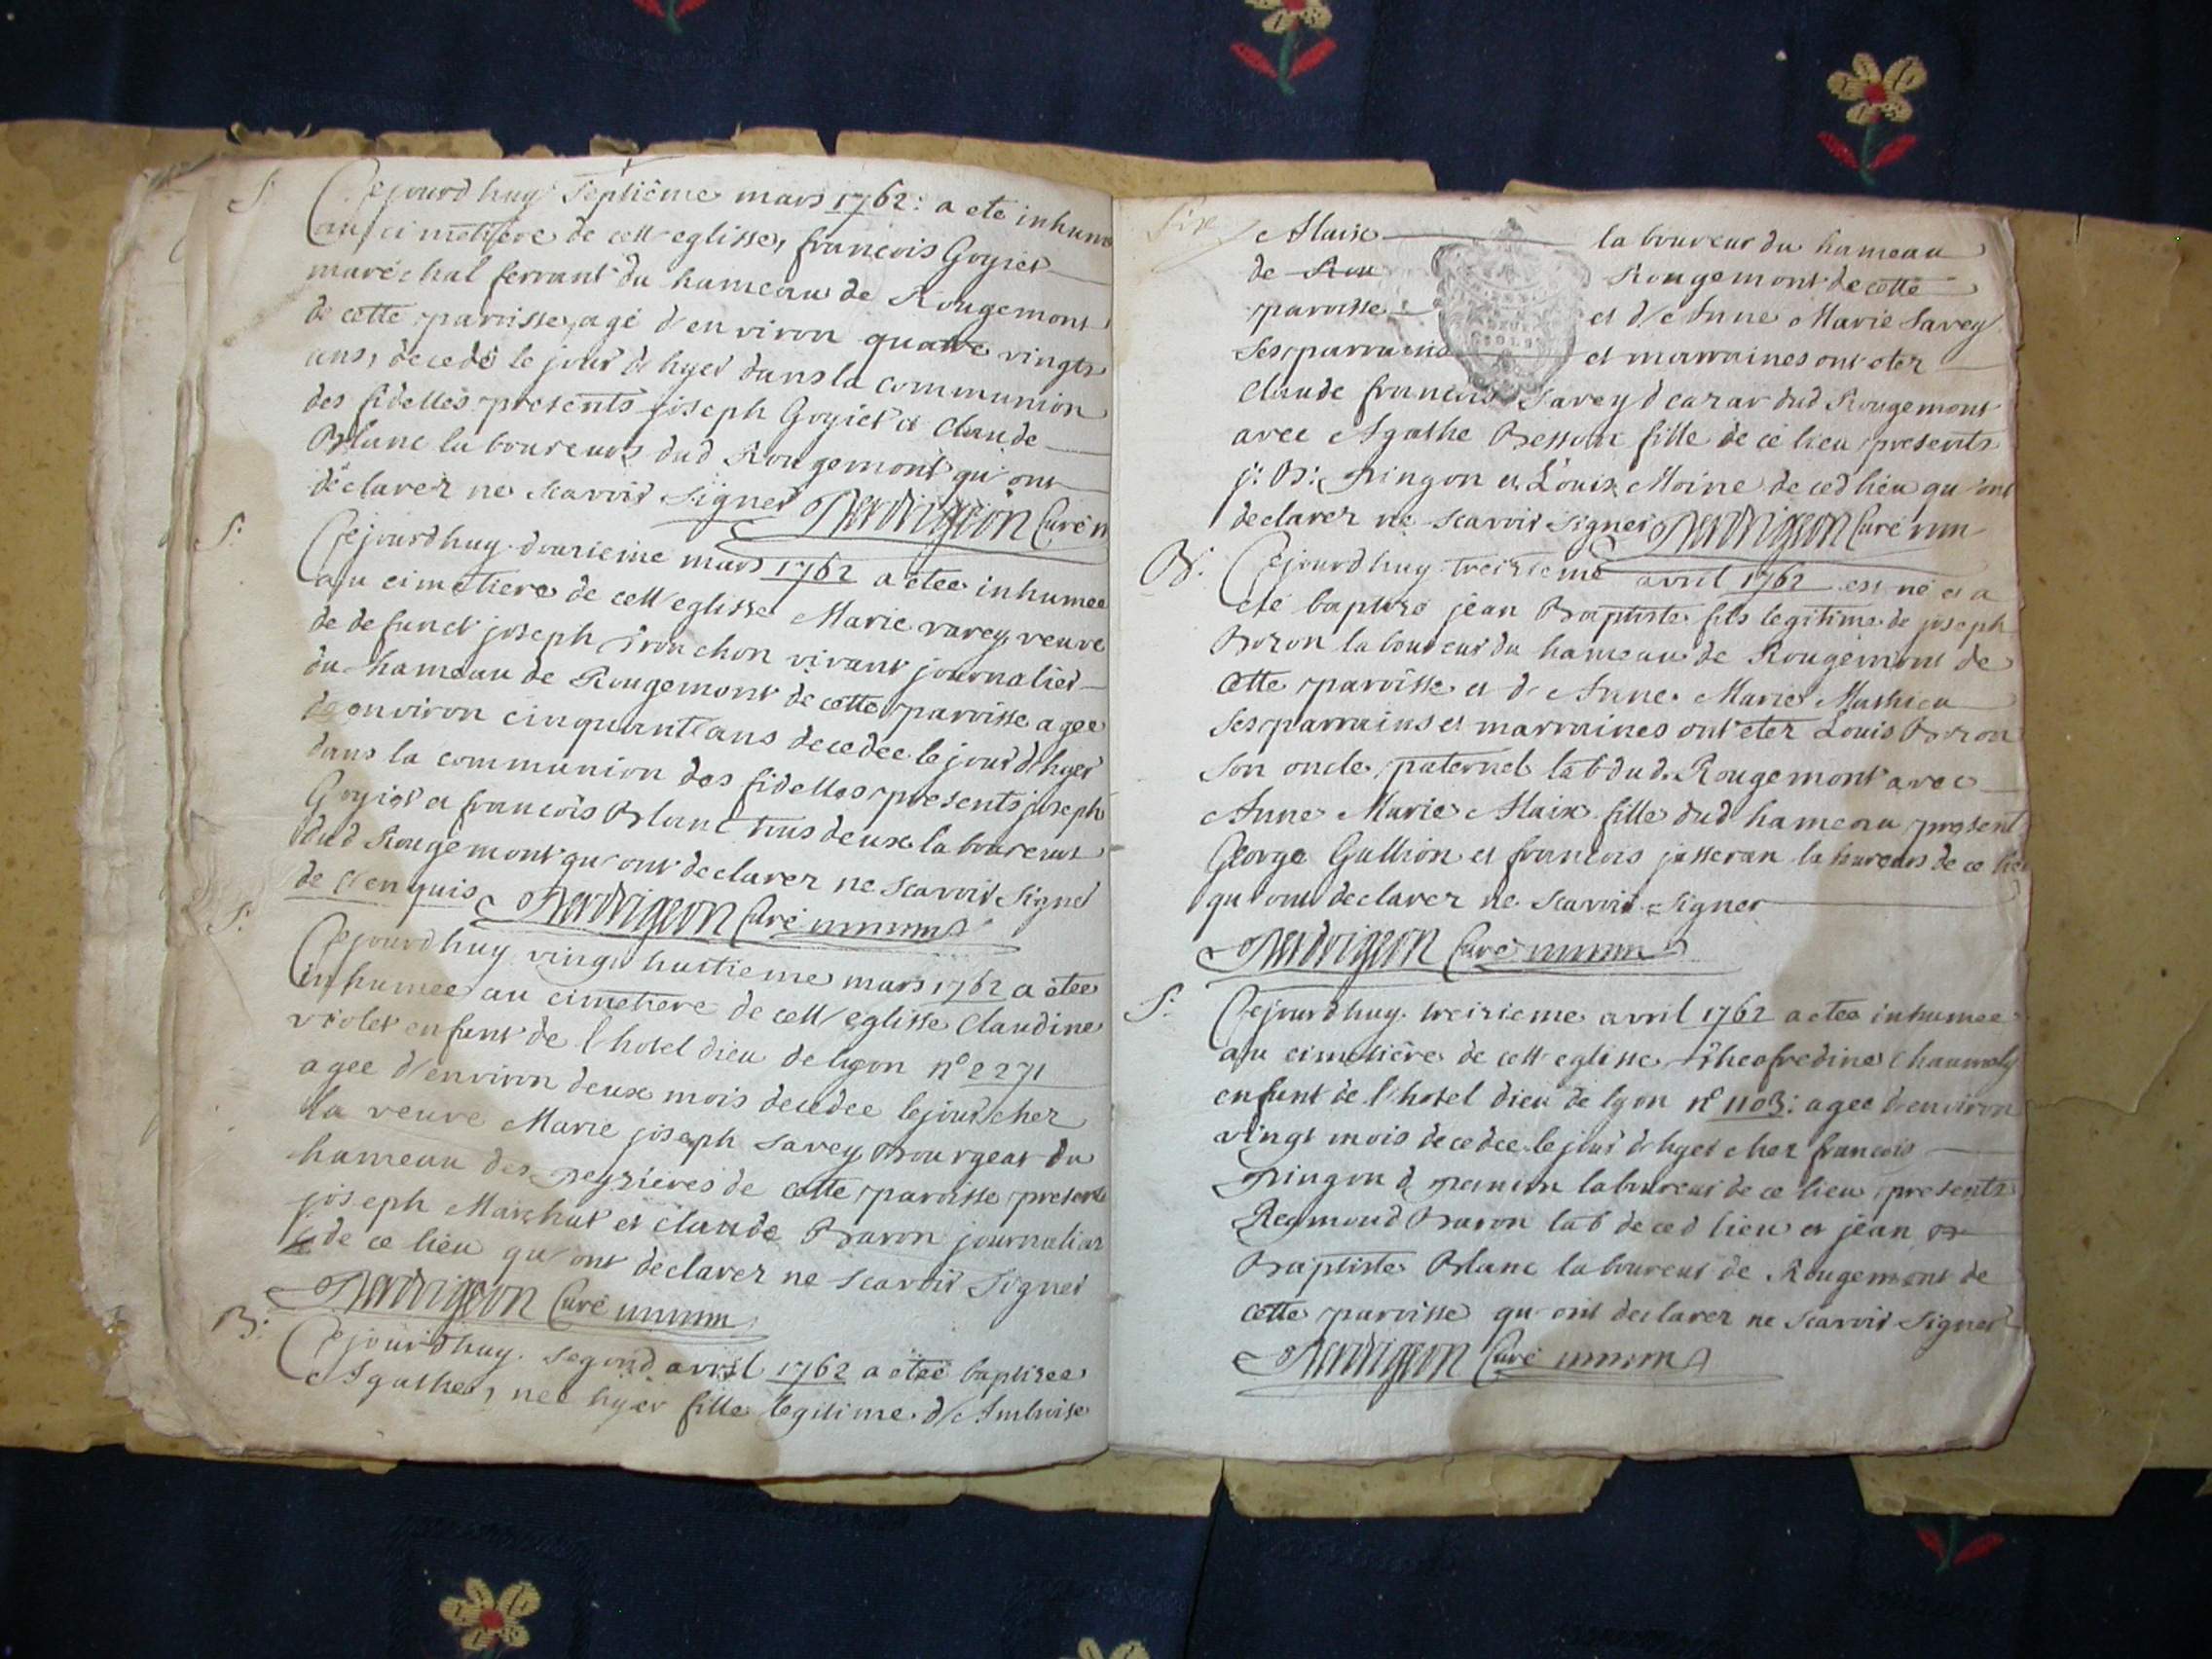 S:
Cejourdhuy septième mars 1762: a ete inhumé
au cimetiere de cett eglisse, francois Goyiet
maréchal ferrant du hameau de Rougemont
de cette parroisse, agé d'environ quatre vingts
ans, decedé le jour d'hyer dans la communion
des fidelles presents joseph Goyiet et Claude
Blanc laboureurs dud Rougemont qu'ont
déclarer ne scavoir signer Curé
S:
Cejourdhuy douzieme mars 1762 a étée inhumee
au cimetiere de cett eglisse Marie varey veuve
de defunct joseph Trouchon vivant journalier
du hameau de Rougemont de cette parroisse agee
de environ cinquant ans decedée le jour d'hyer
dans la communion des fidelles presents joseph
Goyiet et francois Blanc tous deux laboureurs
dud Rougemont qu'ont declarer ne scavoir signer
de ce enquis Curé
S:
Cejourdhuy vingt huitieme mars 1762 a étée
inhumee au cimetiere de cett eglisse Claudine
violet enfant de l'hotel dieu de lyon n° 2271
agee d'environ deux mois decedee le jour cher
la veuve Marie joseph Savey Bourgeat du
hameau des peyzieres de cette parroisse presents
joseph Marchut et claude Baron journalier
de ce lieu qu'ont declarer ne scavoir signer
Curé
B:
Cejourdhuy segond avril 1762 a étée baptizee
Agathe, née hyer fille legitime d'Ambroise
Alaix laboureur du hameau
de Rou Rougemont de cette
paroisse et d'Anne Marie Savey
ses parrains et marraines ont eter
Claude francois Savey dud Rougemont
avec Agathe Besson fille de ce lieu presents
j: B: Pingon et Louis Moine de ced lieu qu'ont
declarer ne scavoir signer Curé
B:
Cejourdhuy treizieme avril 1762 est né et a
été baptizé jean Baptiste fils legitime de joseph
Bozon laboureur du hameau de Rougemont de
cette parroisse et d'Anne Marie Mathieu
ses parrains et marraines ont eter Louis Bozon
son oncle paternel lab dud. Rougemont avec
Anne Marie Alaix fille dud hameau present
George Gullion et francois jasseran laboureurs de ce lieu
qu'ont declarer ne scavoir signer
Curé
S:
Cejourdhuy treizieme avril 1762 a etee inhumee
au cimetière de cett eglisse Theofredine Chaumely
enfant de l'hotel dieu de lyon n° 1103: agee d'environ
vingt mois decedee le jour d'hyer cher francois
Pingon laboureur de ce lieu presents
Reymond Baron lab de ced lieu et jean B
Baptiste Blanc laboureur de Rougemont de
cette parroisse qu'ont declarer ne scavoir signer
Curé